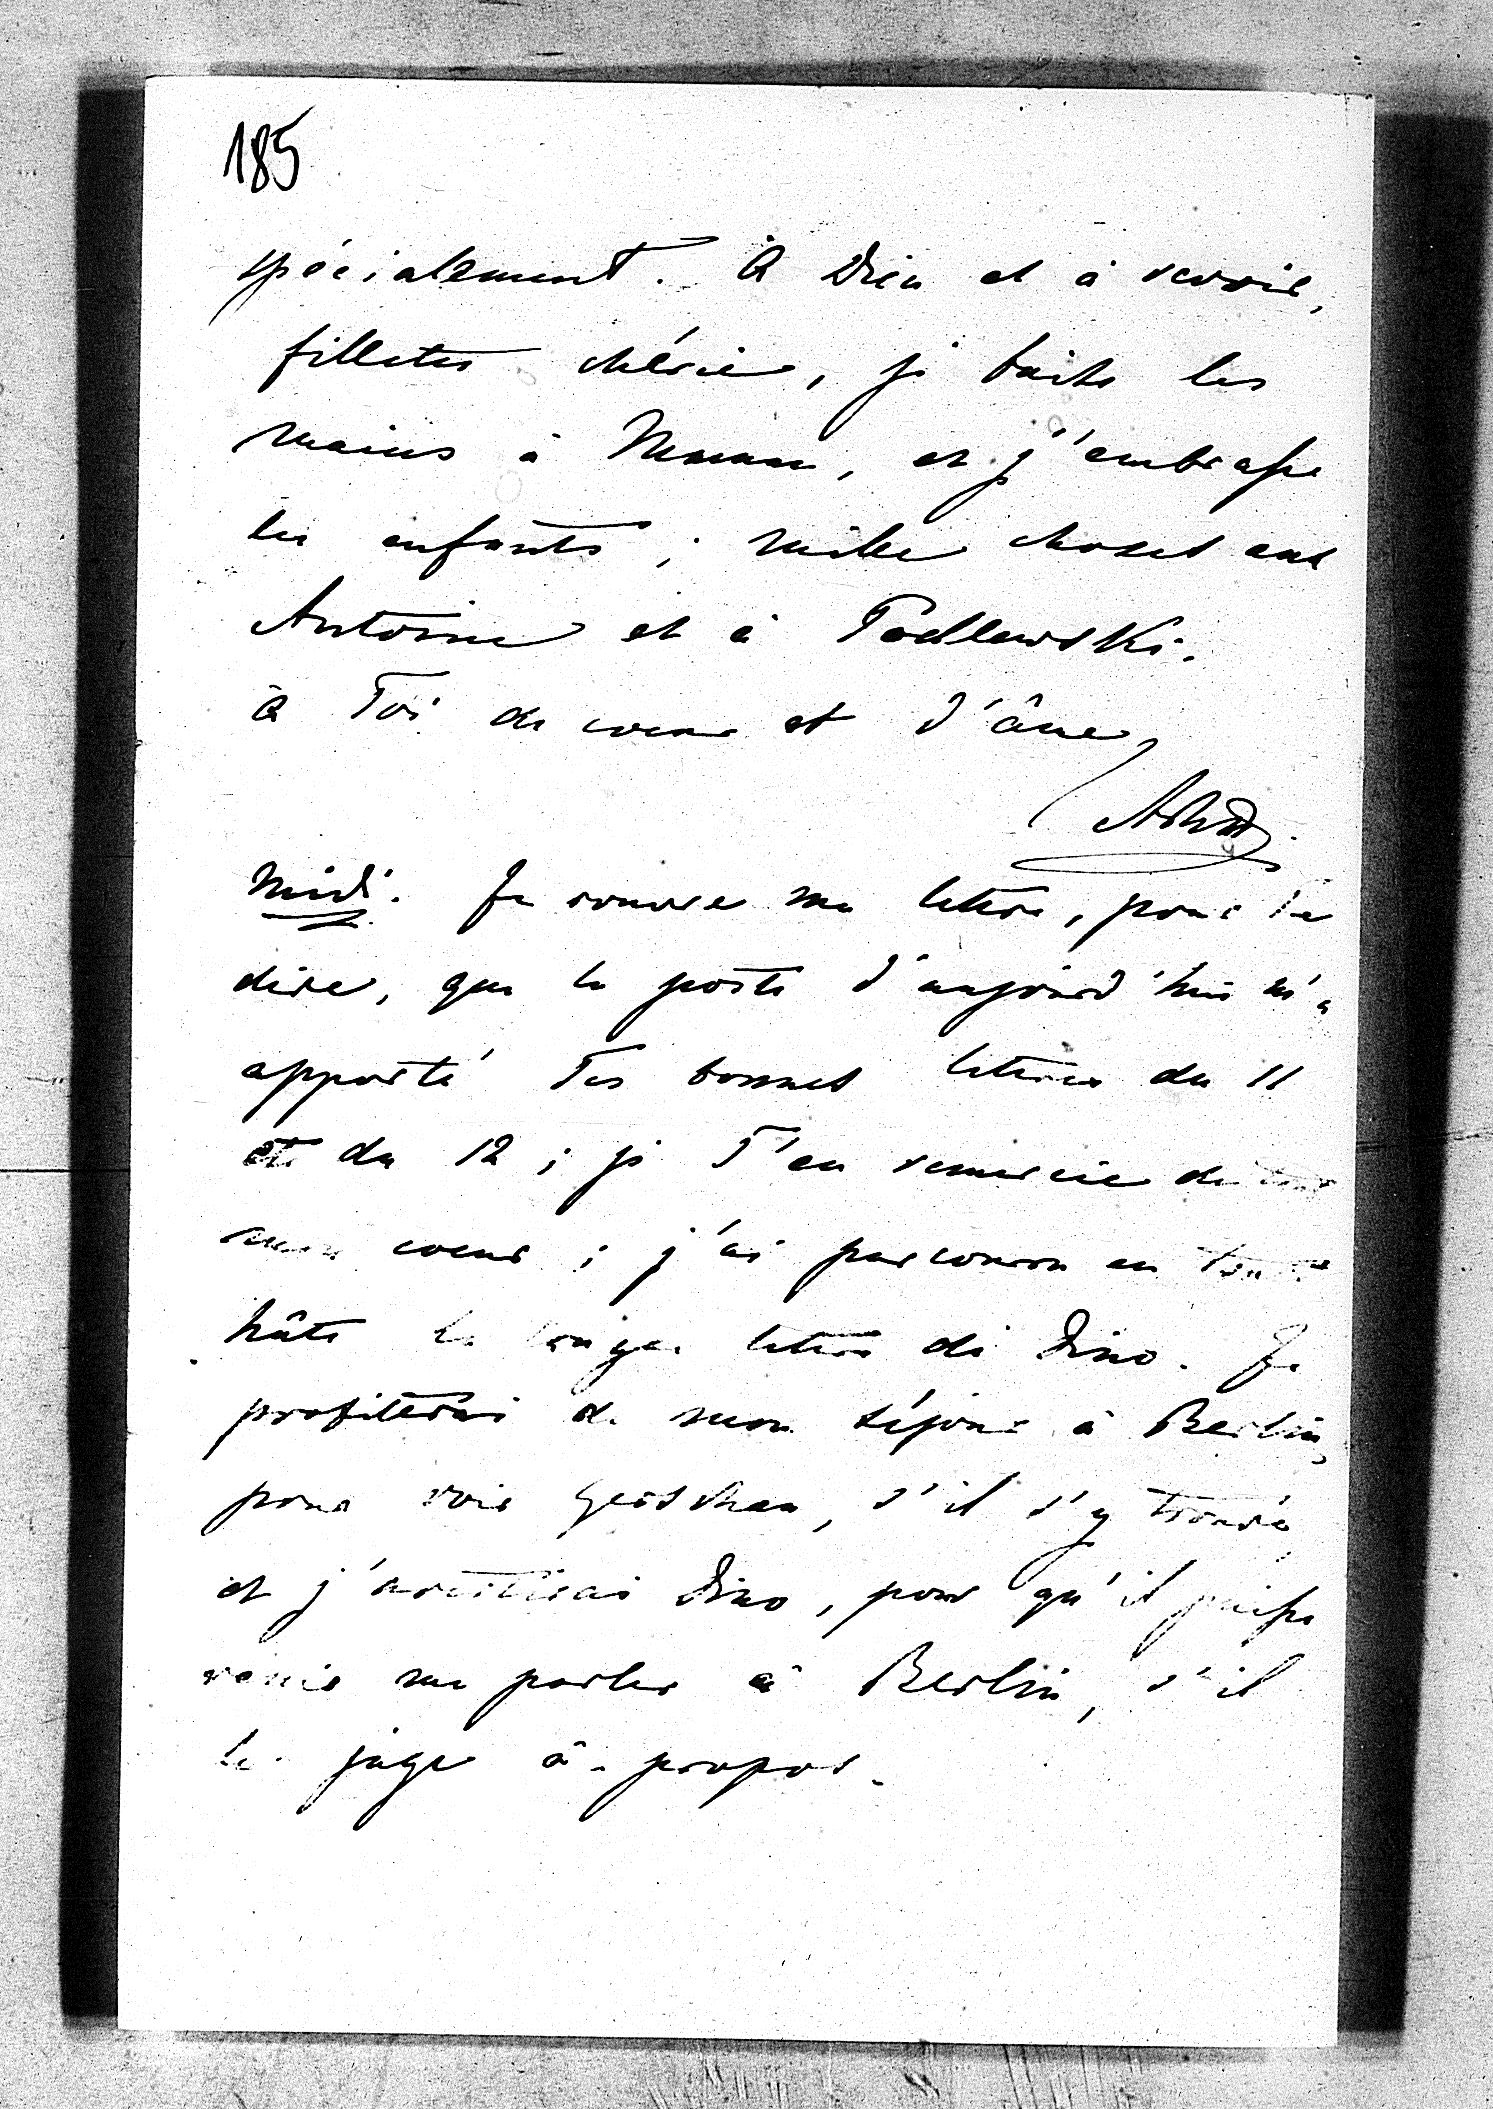 185
spécialement. À Dieu et à revoir,
fillette chérie, je baise les
mains à Maman, et j'embrasse
les enfants ; mille choses aux
Antoine et à Podlewski.
à Toi de coeur et d'âme
Midi. Je rouvre ma lettre, pour te
dire, que la poste d'aujourd'hui m'a
apporté Tes bonnes lettres du 11
et du 12 ; je T'en remercie de tout
mon coeur ; j'ai parcouru en toute
hâte la longue lettre de Dino. Je
profiterai de mon séjour à Berlin,
pour voir , s'il s'y trouve,
et j'avertirai Dino, pour qu'il puisse
venir me parler à Berlin, s'il
le juge à-propos.